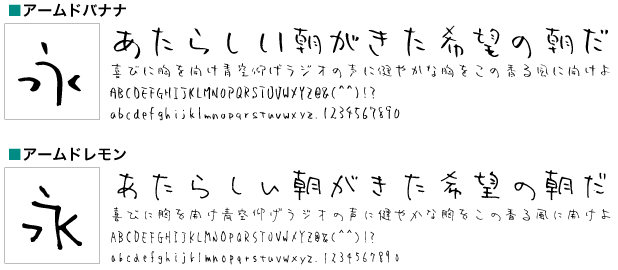 ■アームドバナナ
永
あたらしい朝がきた希望の朝だ
喜びに胸を開け青空仰げラジオの声に健やかな胸をこの香る風に開けよ
ABCDEFGHIJKLMNOPQRSTUVWXYZ@&(^^)!?
abcdefghijklmnopqrstuvwxyz.1234567890
■アームドレモン
永
あたらしい朝がきた希望の朝だ
喜びに胸を開け青空仰げラジオの声に健やかな胸をこの香る風に開けよ
ABCDEFGHIJKLMNOPQRSTUVWXYZ@&(^^)!?
abcdefghijklmnopqrstuvwxyz.1234567890